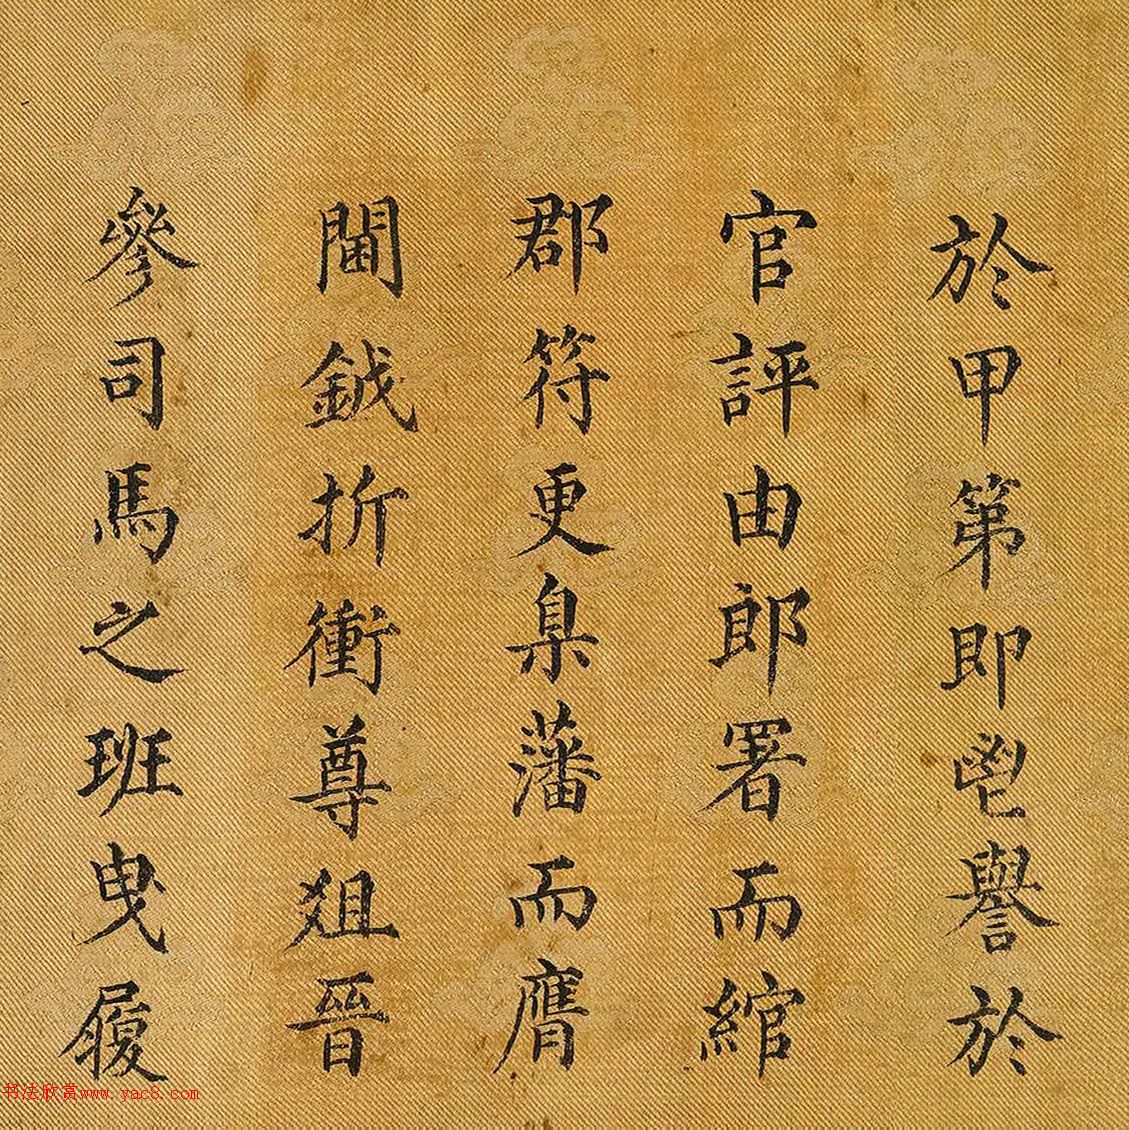 於甲第即鬯譽於
官評由郎署而綰
郡符更臬藩而膺
閫鉞折衝尊爼晉
參司馬之班曳履
书法欣赏www.yac8.com